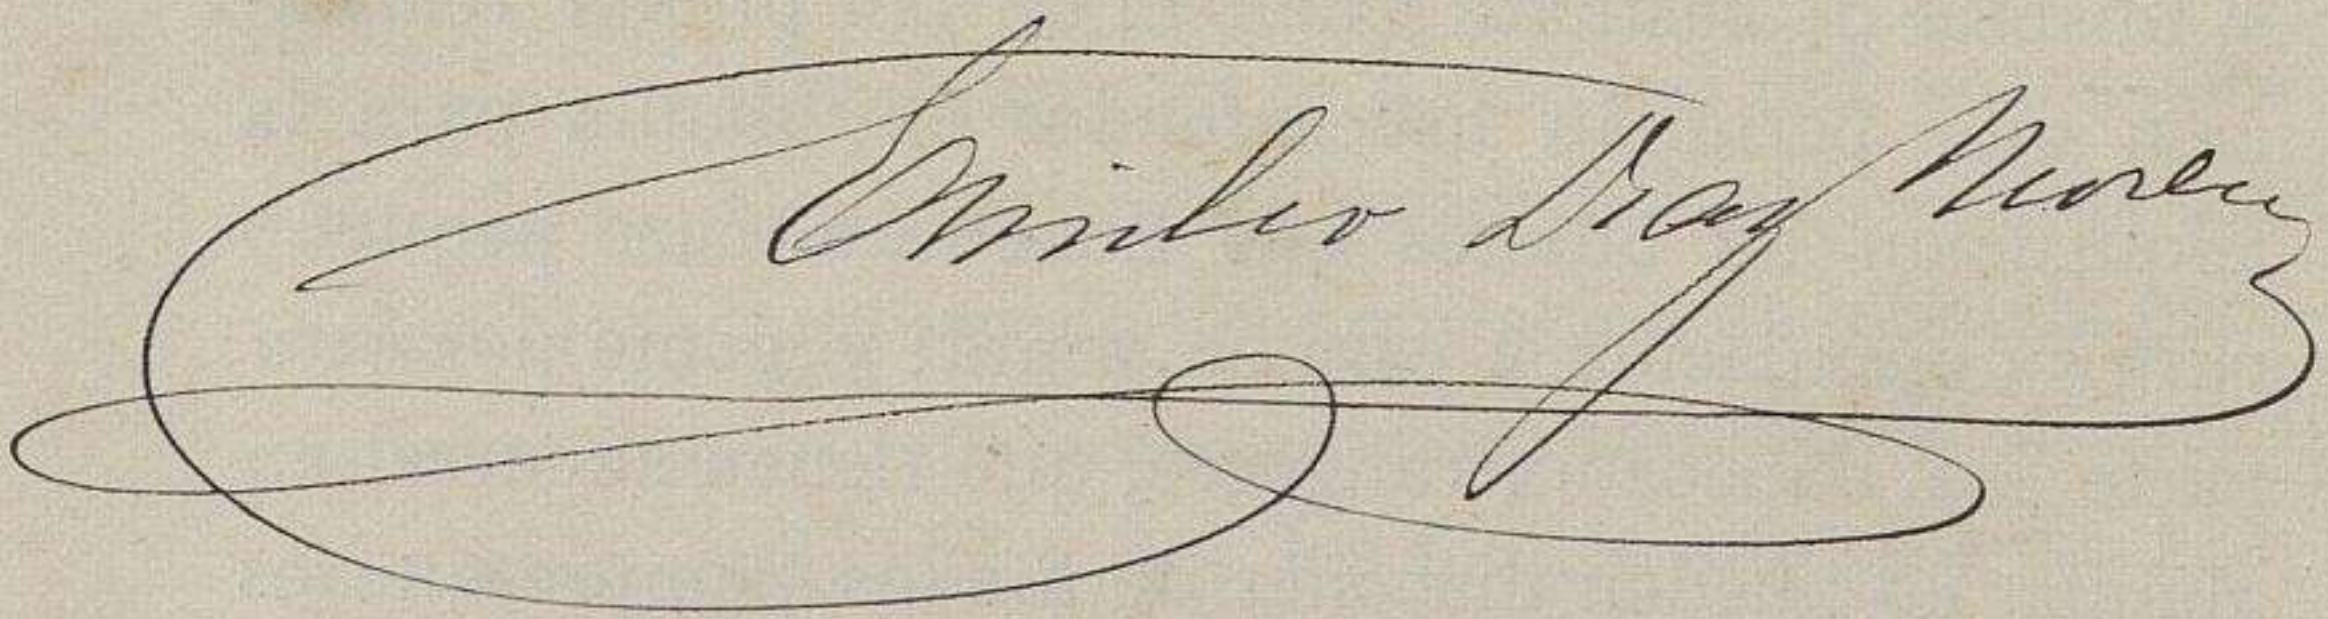 Emilio Díaz Moreu